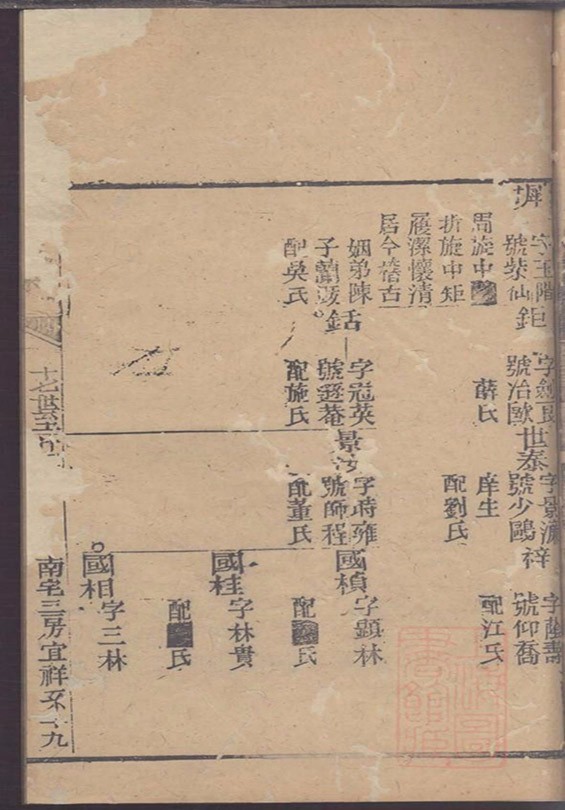 字玉階
號紫仙
周旋中
折旋中矩
履潔懷清
居今稽古
姻弟陳
子蘭
配吳氏
鉅
號冶歐
薛氏
銛
字冠英
號遜菴
配施氏
世泰
號少鷗
庠生
配劉氏
景
字時雍
號師程
配董氏
梓
字蔭喬
號仰喬
配江氏
國楨
字顯林
配 氏
國桂
字林貴
配 氏
國相
字三林
南宅三房宜祥 十九